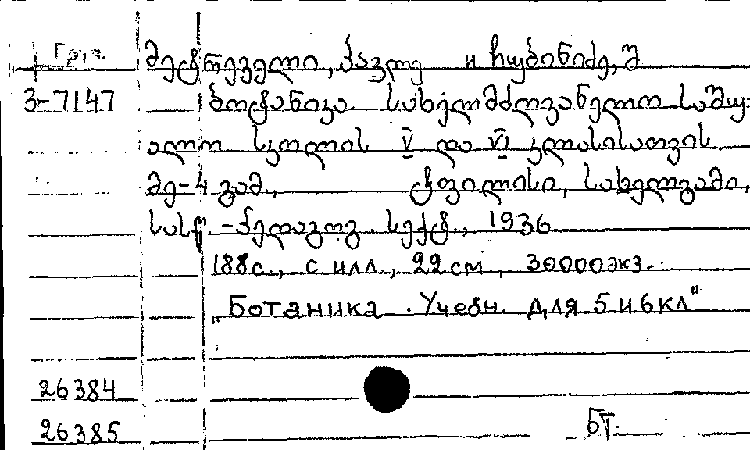 Груз. მეტრეველი, პავლე и ჩუბინიძე, შ
3-7147 ბოტანიკა სახელმძღვანელო საშუ-
ალო სკოლის V და VI კლასისათვის
მე-4 გამ., ტფილისი, სახელგამი,
სასწ.-პედაგოგ. სექტ., 1936
188с., с илл., 22 см, 30000экз.
„Ботаника. Учебн. для 5 и 6 кл"
26384
26385 БТ.